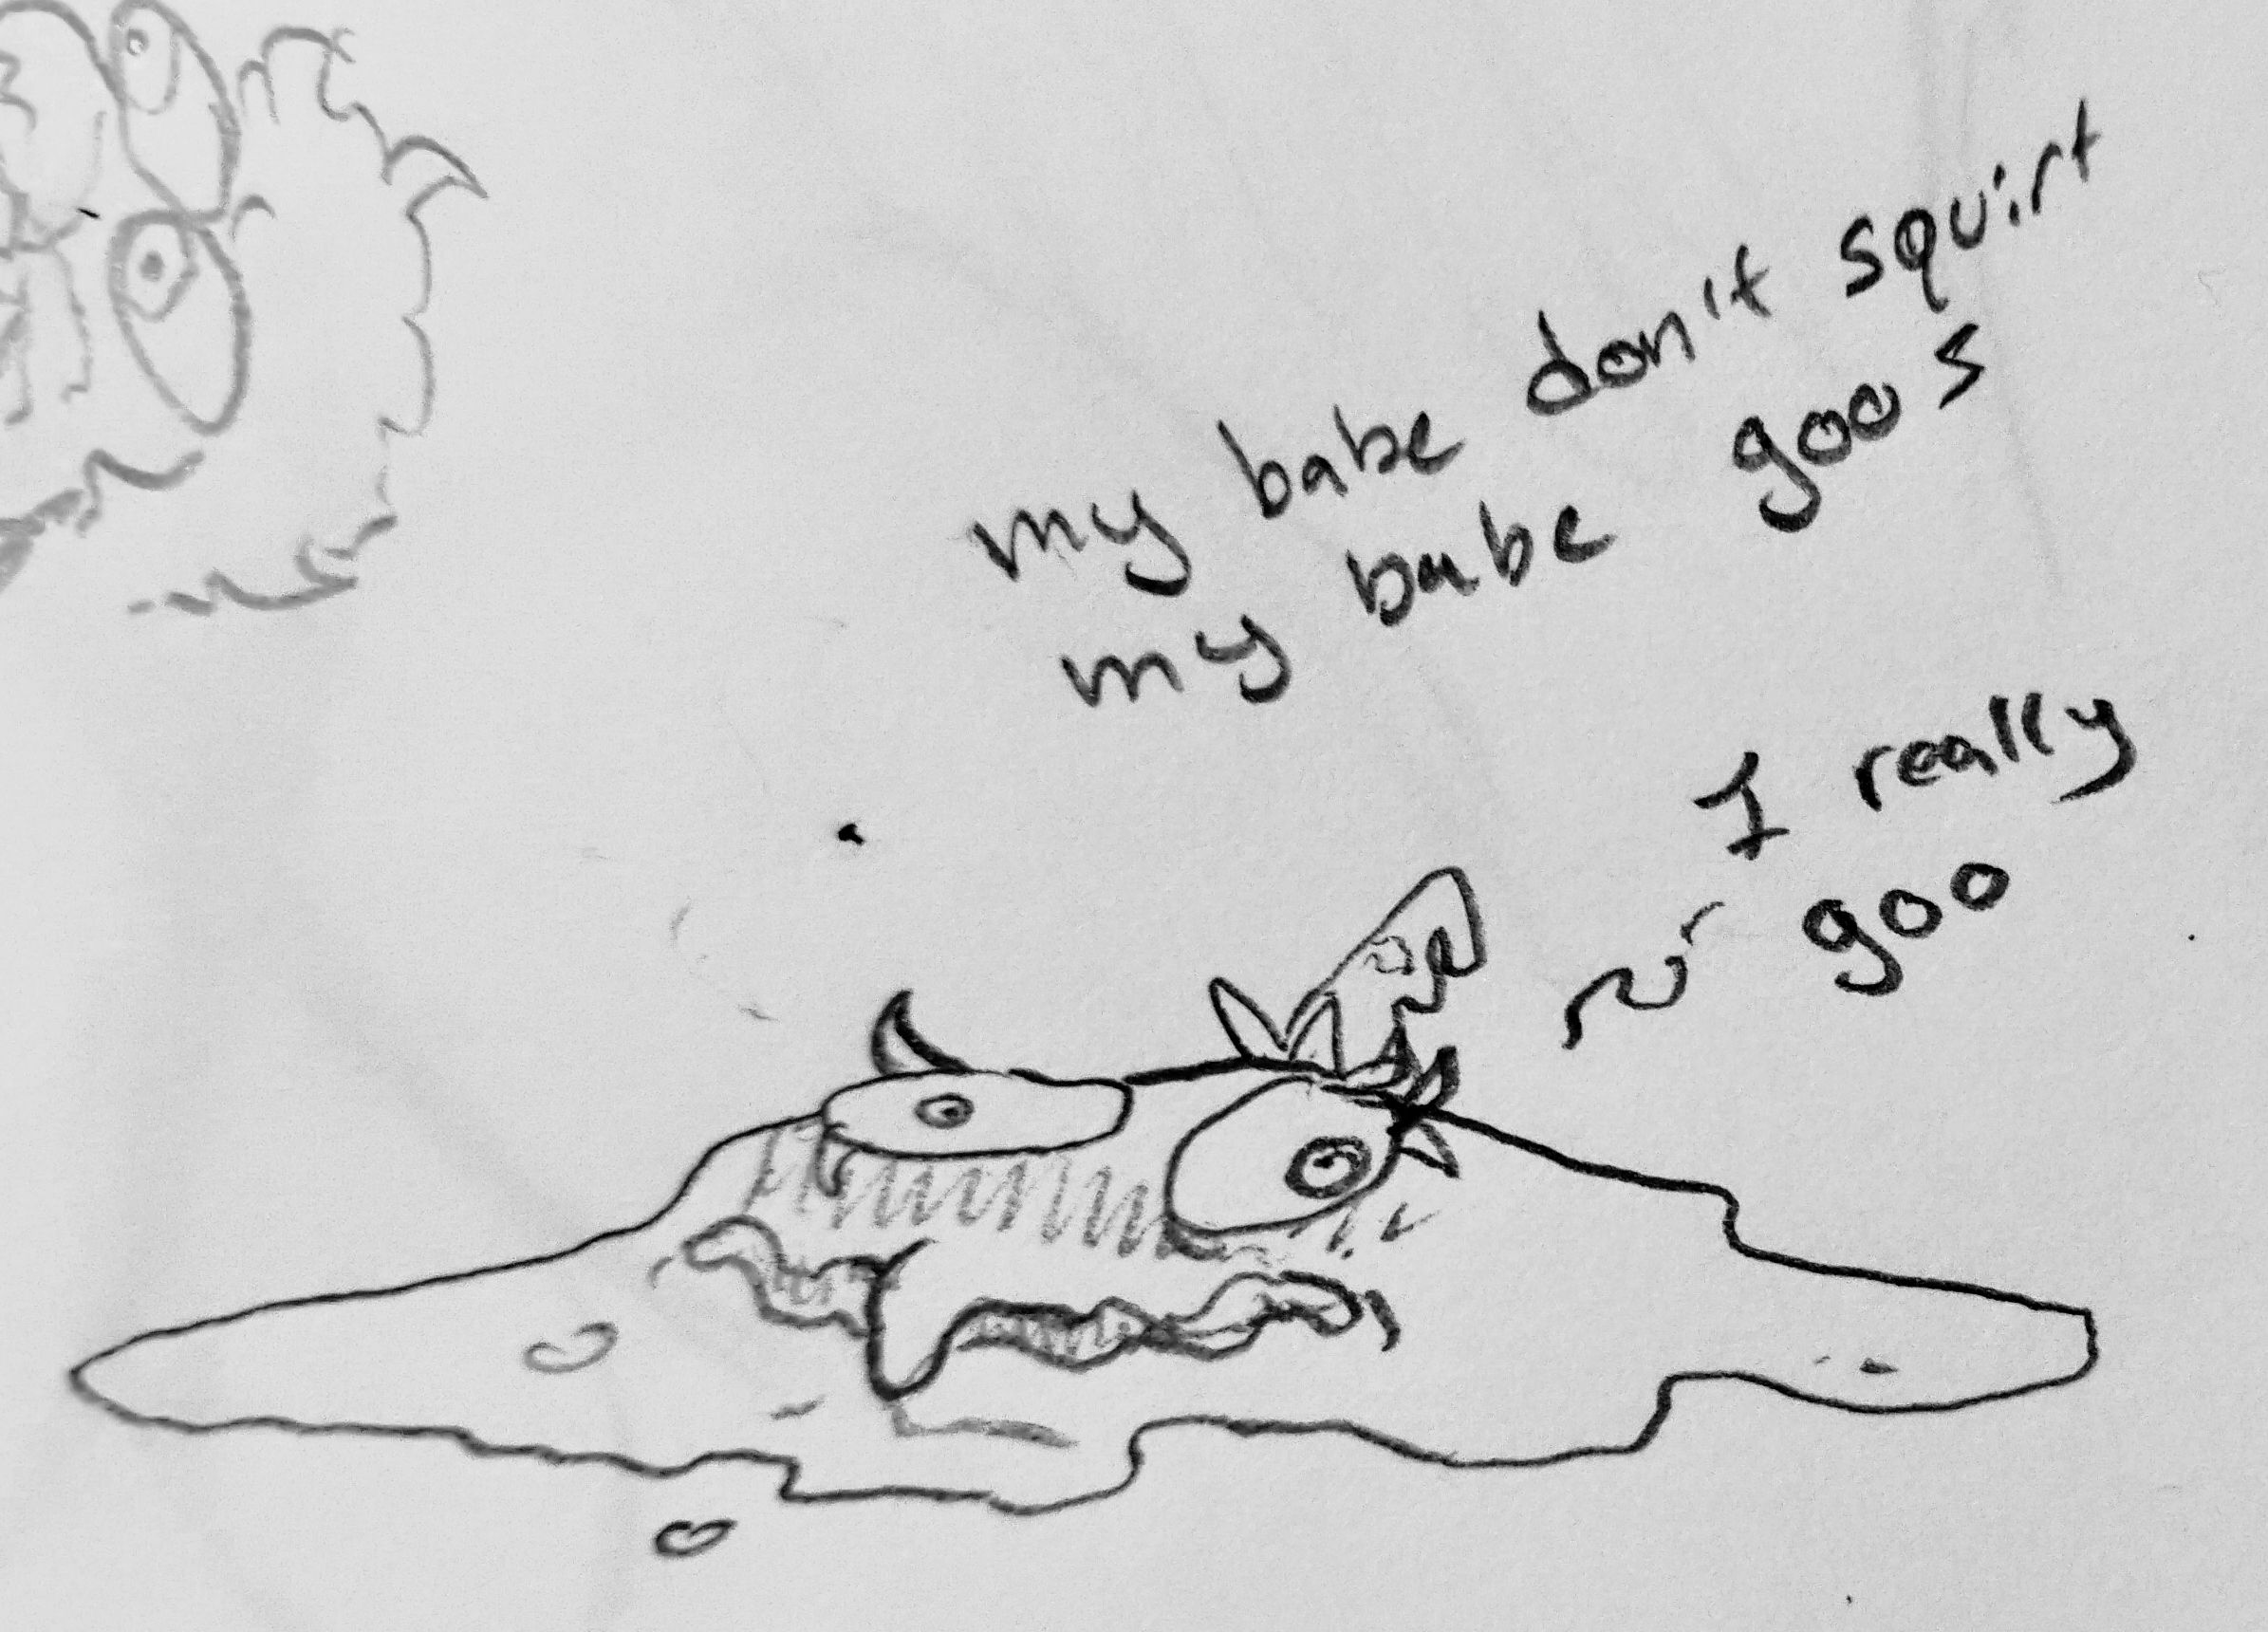 my babe don't squirt
my babe goos
I really
goo